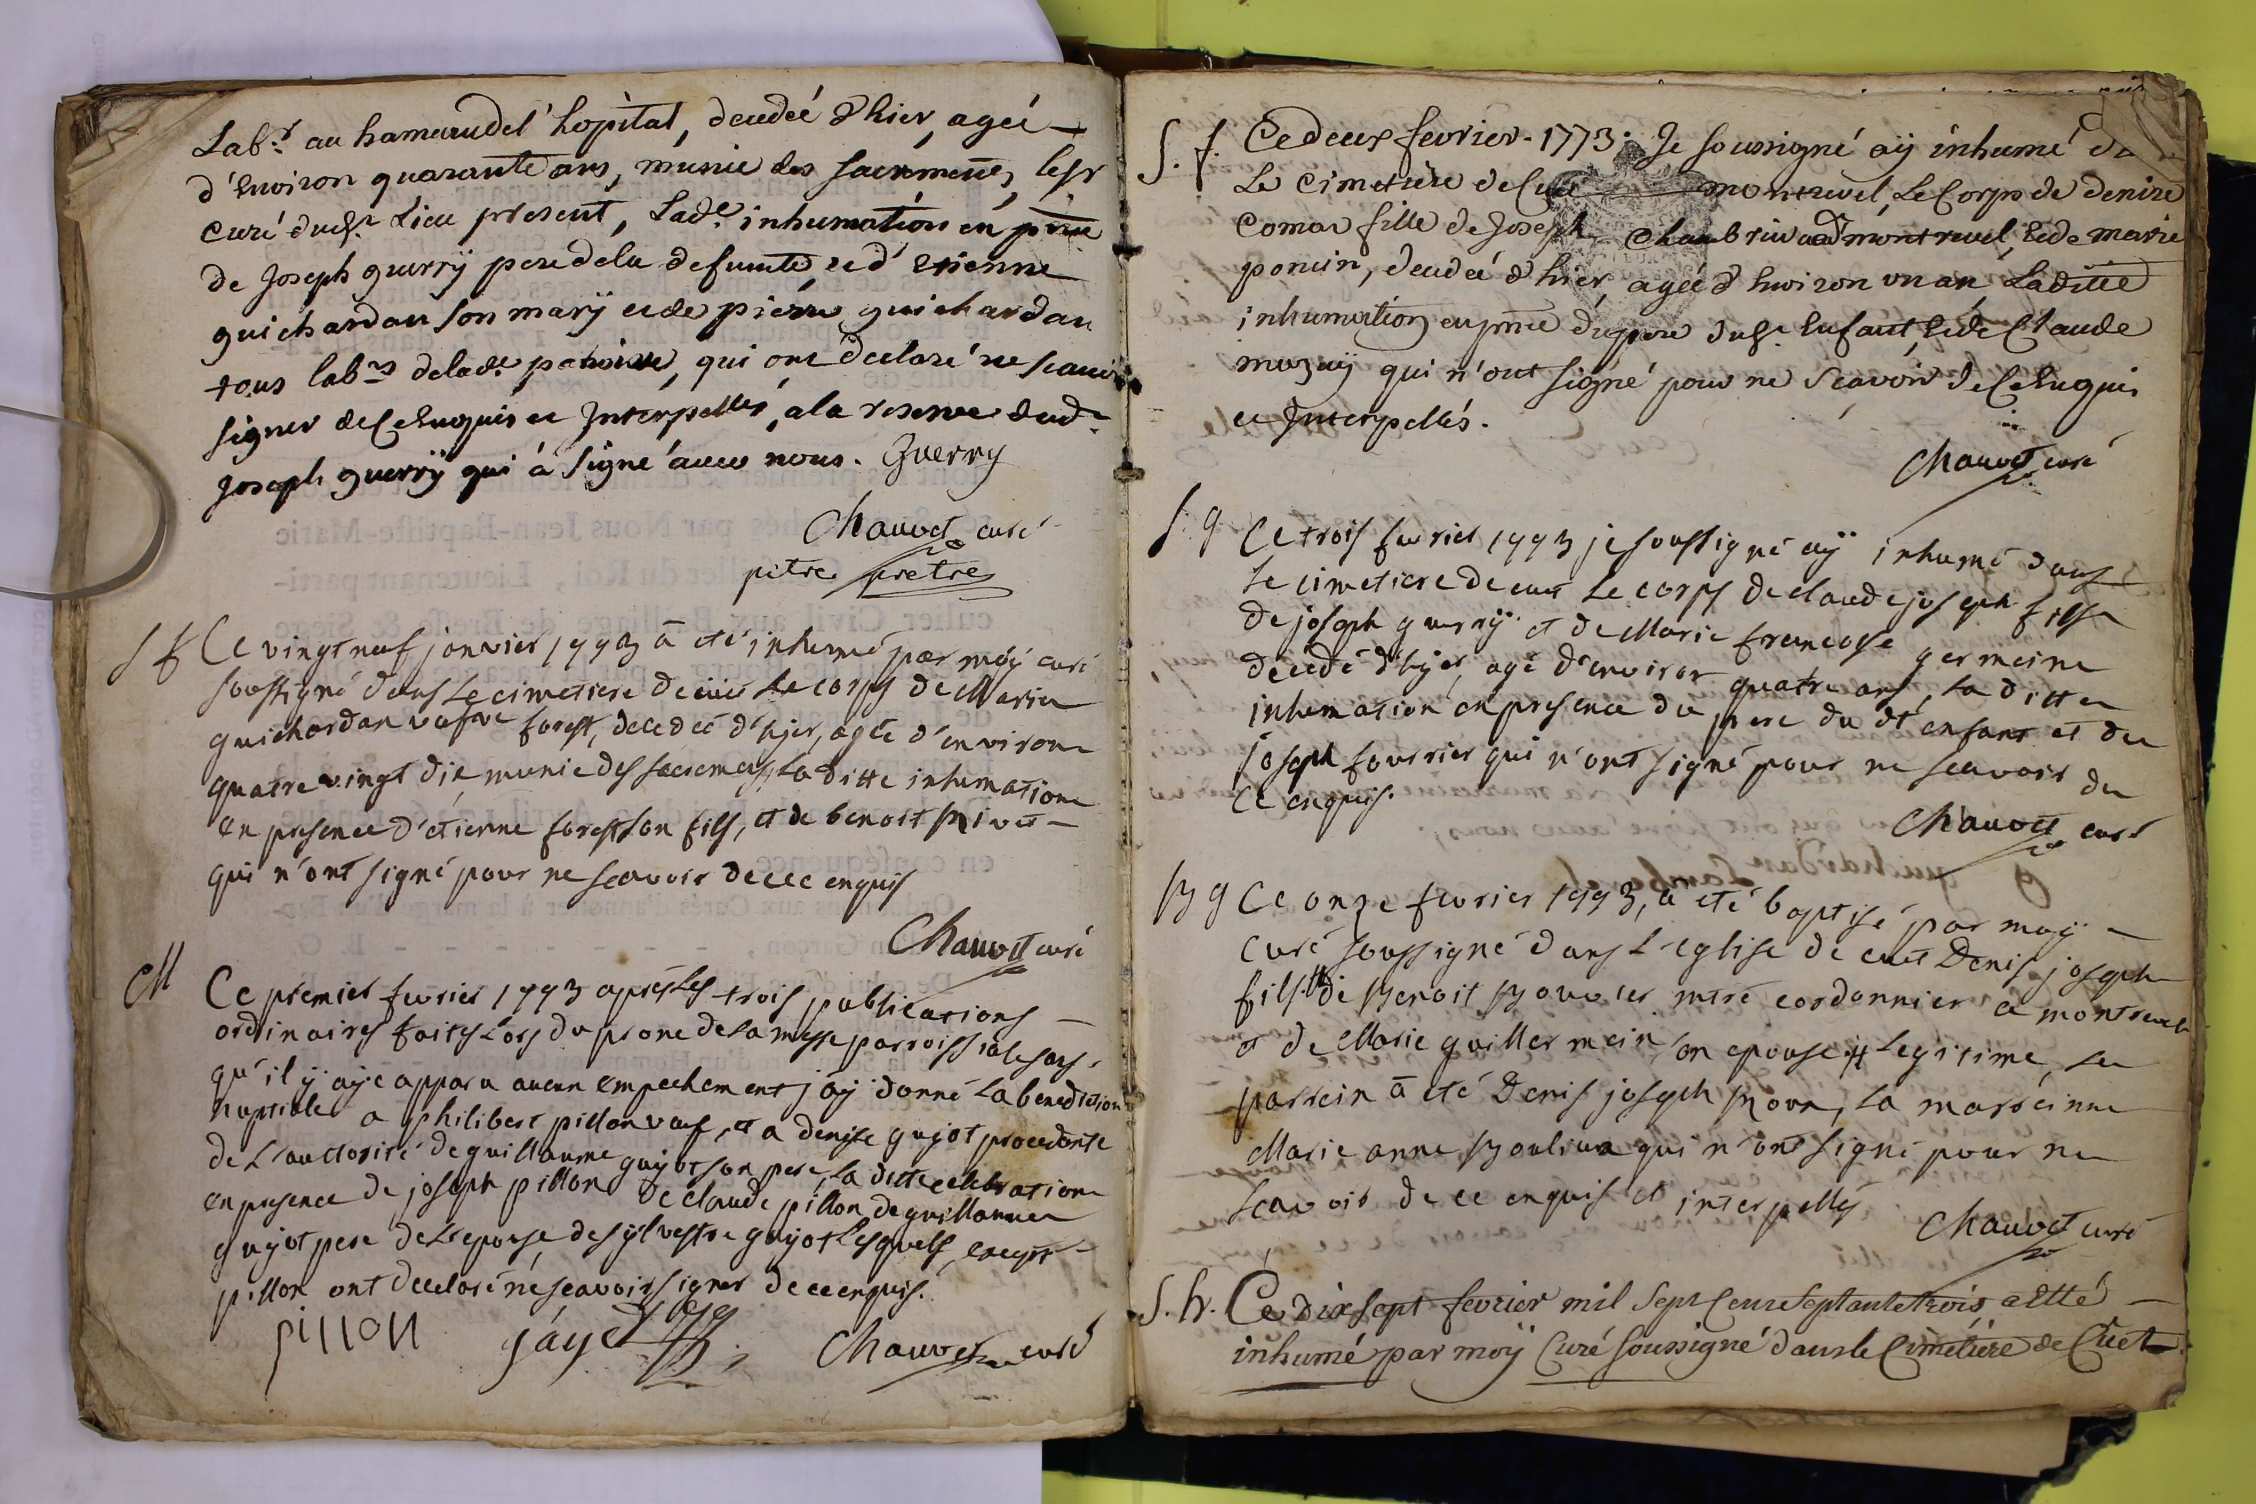 Labr. au hamaeau del'hopital, decedeé d'hier, ageé
d'Environ quarante ans, munie des sacrements, le sr
curé dudt. Lieu present, Lade. inhumation en pnce
de Joseph guerrÿ pere dela defunte et d'Etienne
guichardan son marÿ et de pierre guichardan
tous labrs delade. paroisse, qui ont declaré ne scavoir
signer de Ce Enquis et Interpellés, a la reserve dudt.
Joseph guerrÿ qui á signé avec nous. Guerry
Chauvet curé
pitre pretre
S f Ce vingt neuf janvier 1773 a eté inhumé par moÿ curé
soussigné dans Le cimetiere de cuet Le corps de Marie
guichardan veufve forest, decedeé d'hjer, agée d'environ
quatre vingt dix munie des sacremens, La ditte inhumation
en presence d'étienne forest son fils, et de benoit
qui n'ont signé pour ne scavoir de ce enquis
Chauvet curé
M Ce premier fevrier 1773 apres Les trois publications
ordinaires faites Lors du prone de La messe parroissiale sans
qu'il ÿ aÿe apparu aucun empechement j'aÿ donné La benediction
nuptiale a philibert pillon veuf, et a denise guÿot procedante
de L'auctorité de guillaume guÿot son pere, La ditte celebration
en presence de joseph pillon de claude pillon, de guillaume
guÿot pere de L'epouse, de sylvestre guÿot Lesquels, except
pillon ont declaré ne scavoir signer de ce enquis.
pillon gáyet Chauvet curé
S. f. Ce deux fevrier 1773. Je soussigné aÿ inhumé
Le Cimetiere de Cuet montrevel, Le Corps de denise
Comas fille de Joseph a montrevel, & de marie
poncin, decedeé d'hier ageé d'Environ un an Laditte
inhumation en pnce du pere dudt. Enfant, & de Claude
mozuÿ qui n'ont signé pour ne scavoir de Ce Enquis
et Interpellés.
Chauvet curé
S. g. Ce trois fevrier 1773 je soussigné aÿ inhumé dans
Le cimetiere de cuet Le corps de claude joseph fils
de joseph guerrÿ et de Marie francoise germaine
decedé d'hÿer, agé d'environ quatre ans, La ditte
inhumation en presence du pere du dt enfant et de
joseph fourrier qui n'ont signé pour ne scavoir de
ce enquis.
Chauvet curé
B g Ce onze fevrier 1773, a eté baptisé par moÿ
curé soussigné dans L'eglise de cuet Denis joseph
fils de Benoit Bouvier mtre cordonnier a montrevel
et de Marie guillermein son epouse Legitime, Le
parrein a eté Denis joseph, La marreinne
Marie anne qui n'ont signé pour ne
scavoir de ce enquis et interpellés
Chauvet curé
S. h. Ce dix sept fevrier mil sept cent septante trois, a Etté
inhumé par moÿ Curé soussigné dans le Cimetiere de Cuet